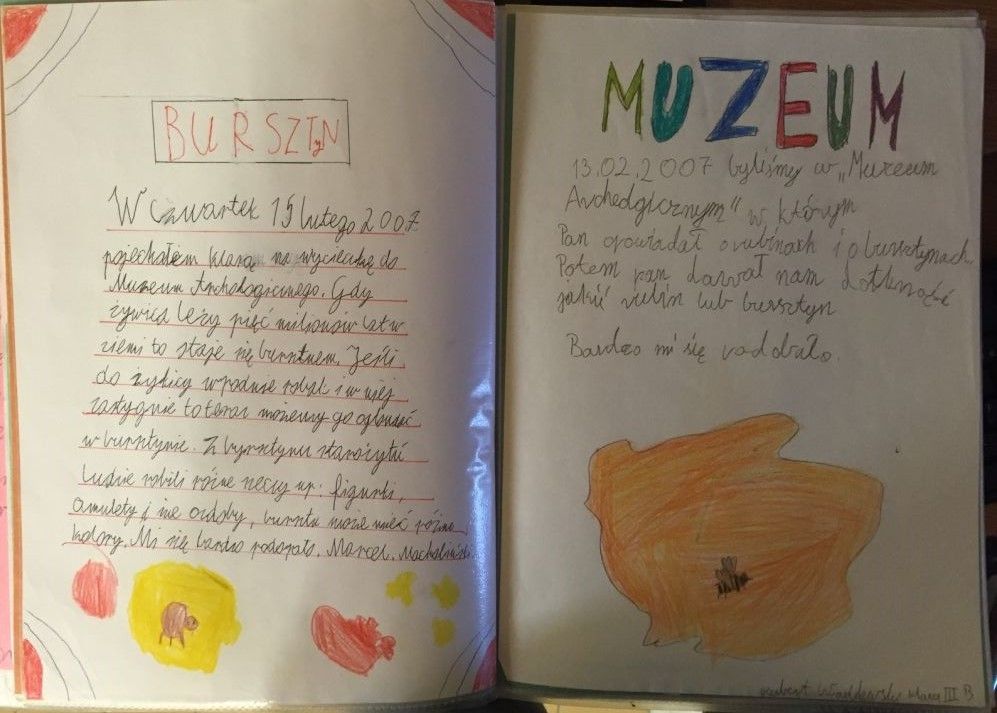 BURSZTyN
W czwartek 15 lutego 2007
pojechałem klasą na wycieczkę do
Muzeum Archologicznego. Gdy
żywica leży pięć milionów lat w
ziemi to staje się burstnem. Jeśli
do żywicy wpadnie robak i w niej
zastygnie to teraz możemy go oglondać
w bursztynie. Z byrsztynu starożytń
ludzie robili różne rzeczy np: figurki,
amulety i ine ozdoby, burszta może mieć różne
kolory. Mi się bardzo podopało. Marcel.
MUZEUM
13.02.2007 byliśmy w „Muzeum
Archedgicznym" w którym
Pan opowiadał o rubinach i o bursztynach.
Potem pan dawał nam dotknąć
jakiś rubin lub bursztyn
Bardzo mi się podobało.
klasa III B